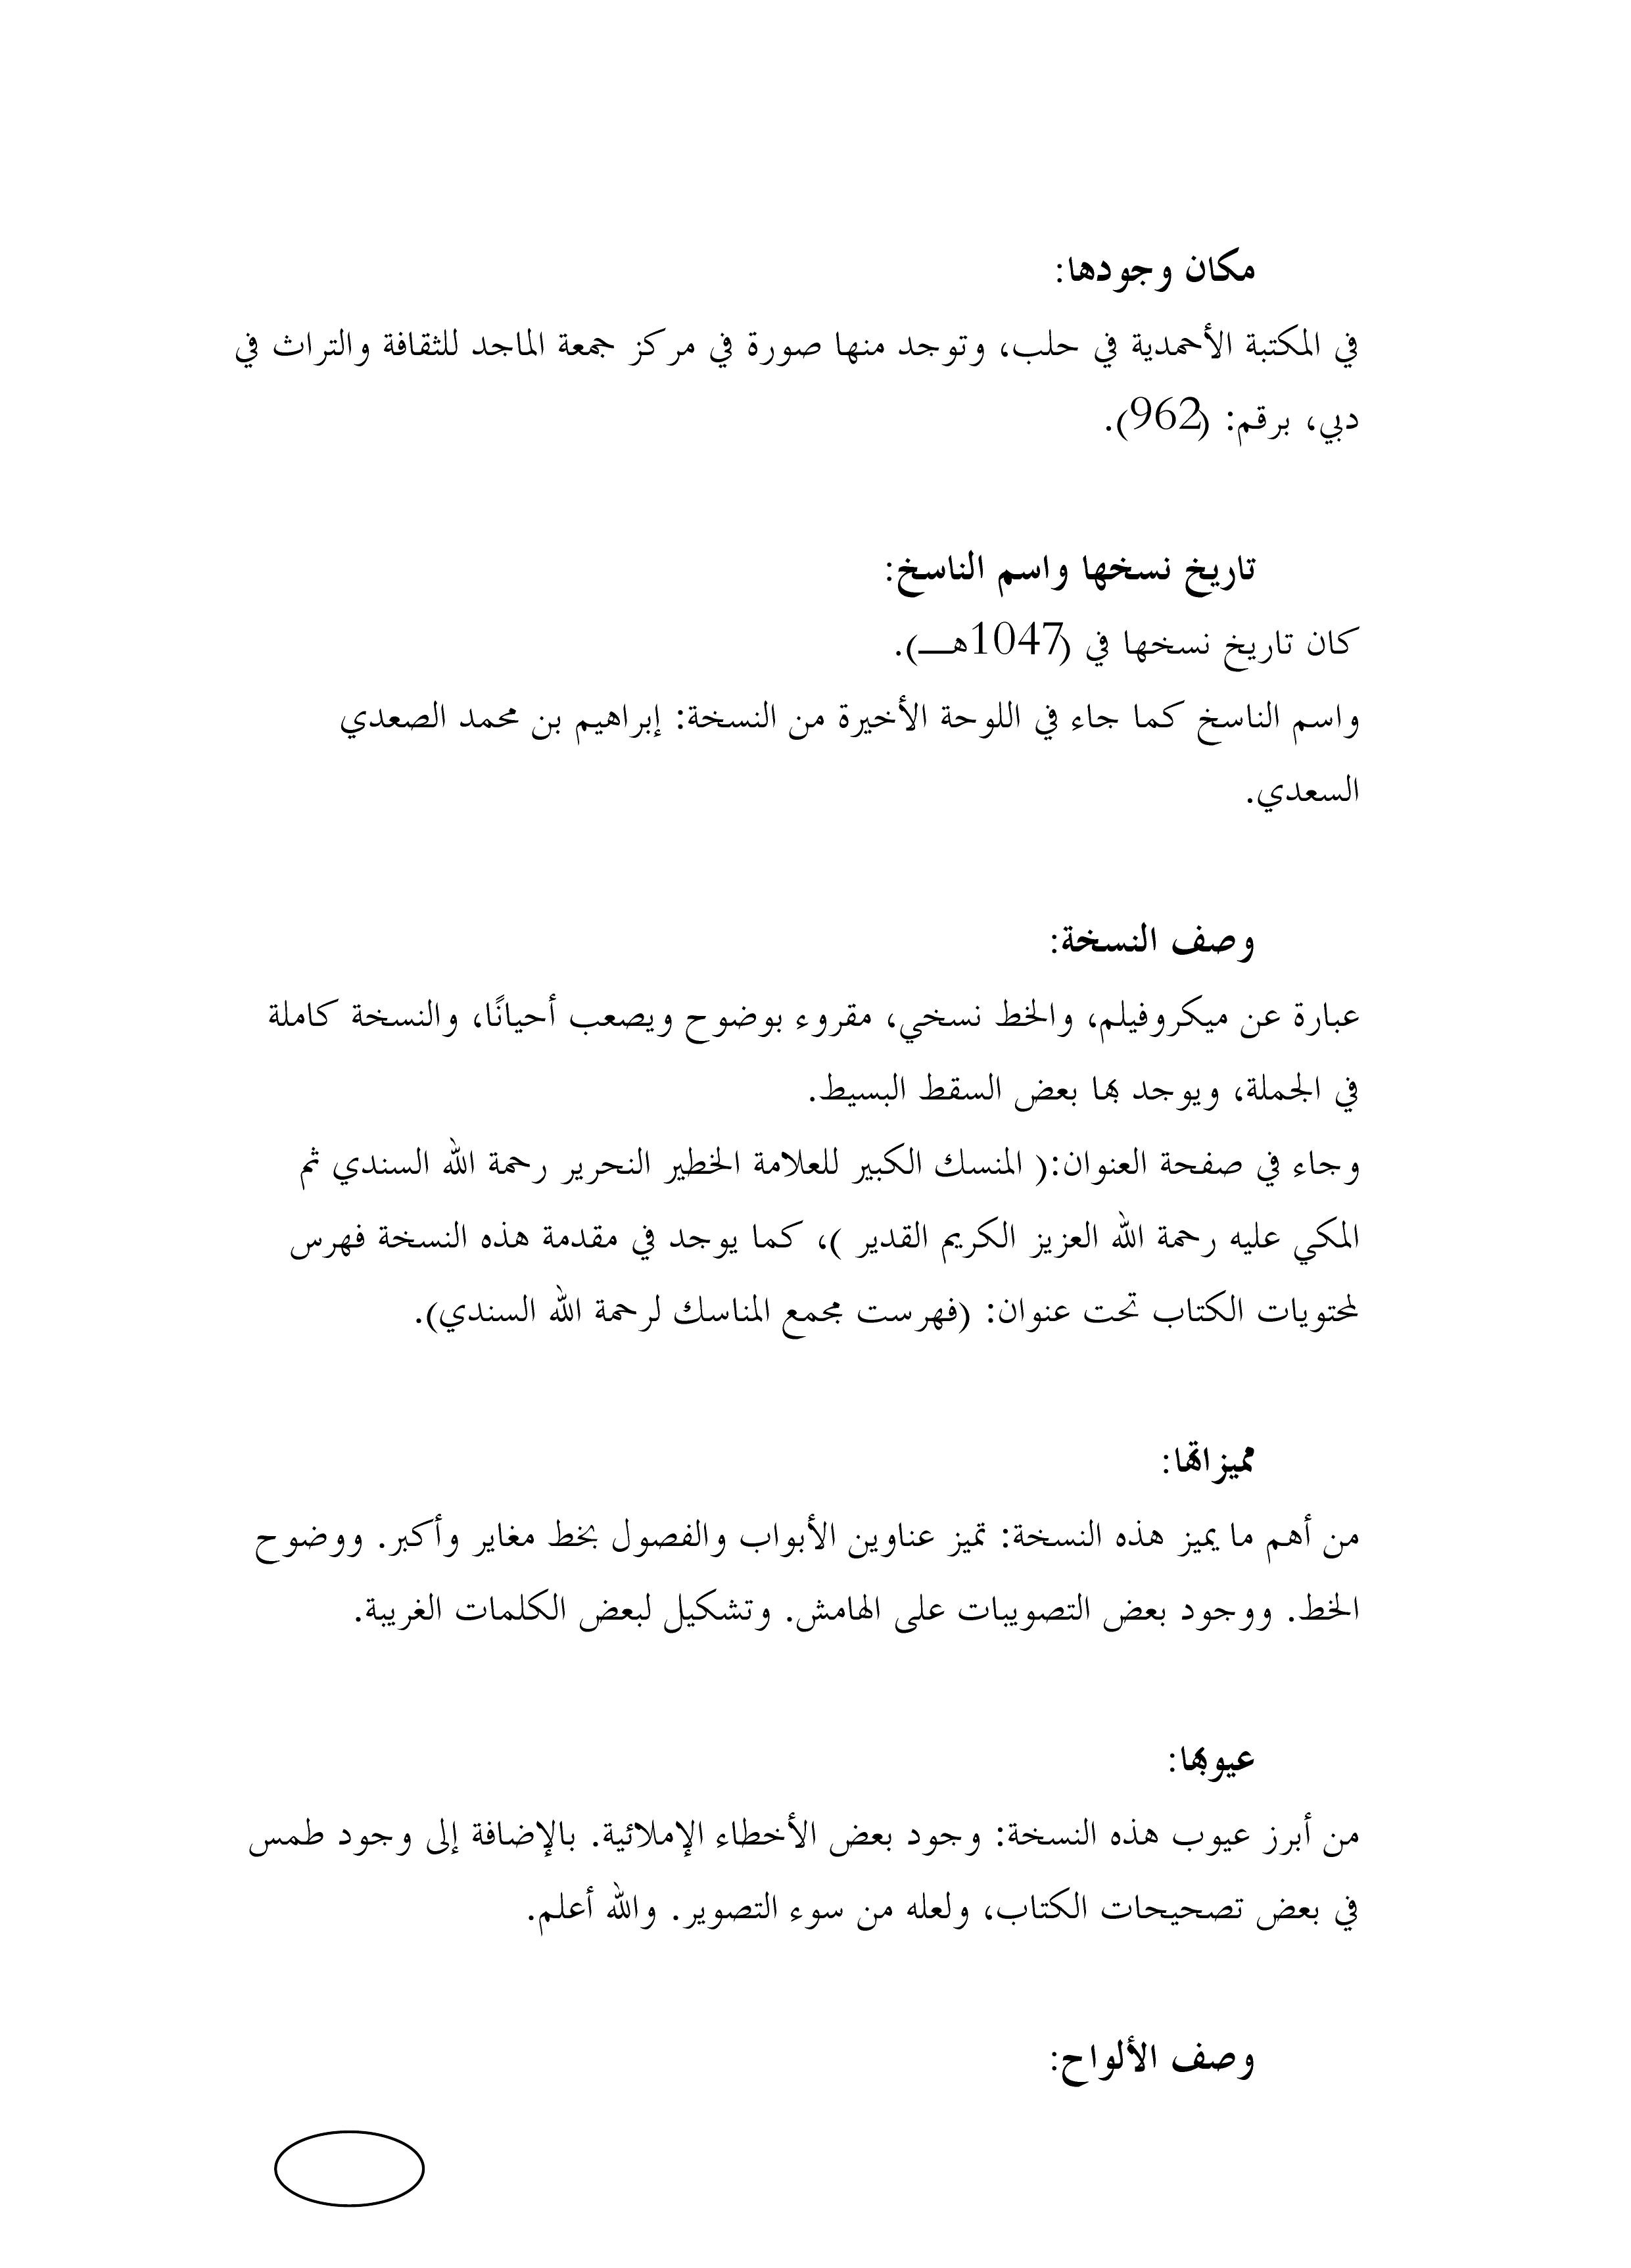 مكان وجودها:
في المكتبة الأحمدية في حلب، وتوجد منها صورة في مركز جمعة الماجد للثقافة والتراث في
دبي، برقم: (962).
تاريخ نسخها واسم الناسخ:
كان تاريخ نسخها في (1047هـــ).
واسم الناسخ كما جاء في اللوحة الأخيرة من النسخة: إبراهيم بن محمد الصعدي
السعدي.
وصف النسخة:
عبارة عن ميكروفيلم، والخط نسخي، مقروء بوضوح ويصعب أحيانًا، والنسخة كاملة
في الجملة، ويوجد بها بعض السقط البسيط.
وجاء في صفحة العنوان:( المنسك الكبير للعلامة الخطير النحرير رحمة الله السندي ثم
المكي عليه رحمة الله العزيز الكريم القدير )، كما يوجد في مقدمة هذه النسخة فهرس
لمحتويات الكتاب تحت عنوان: (فهرست مجمع المناسك لرحمة الله السندي).
مميزاتها:
من أهم ما يميز هذه النسخة: تميز عناوين الأبواب والفصول بخط مغاير وأكبر. ووضوح
الخط. ووجود بعض التصويبات على الهامش. وتشكيل لبعض الكلمات الغريبة.
عيوبها:
من أبرز عيوب هذه النسخة: وجود بعض الأخطاء الإملائية. بالإضافة إلى وجود طمس
في بعض تصحيحات الكتاب، ولعله من سوء التصوير. والله أعلم.
وصف الألواح: